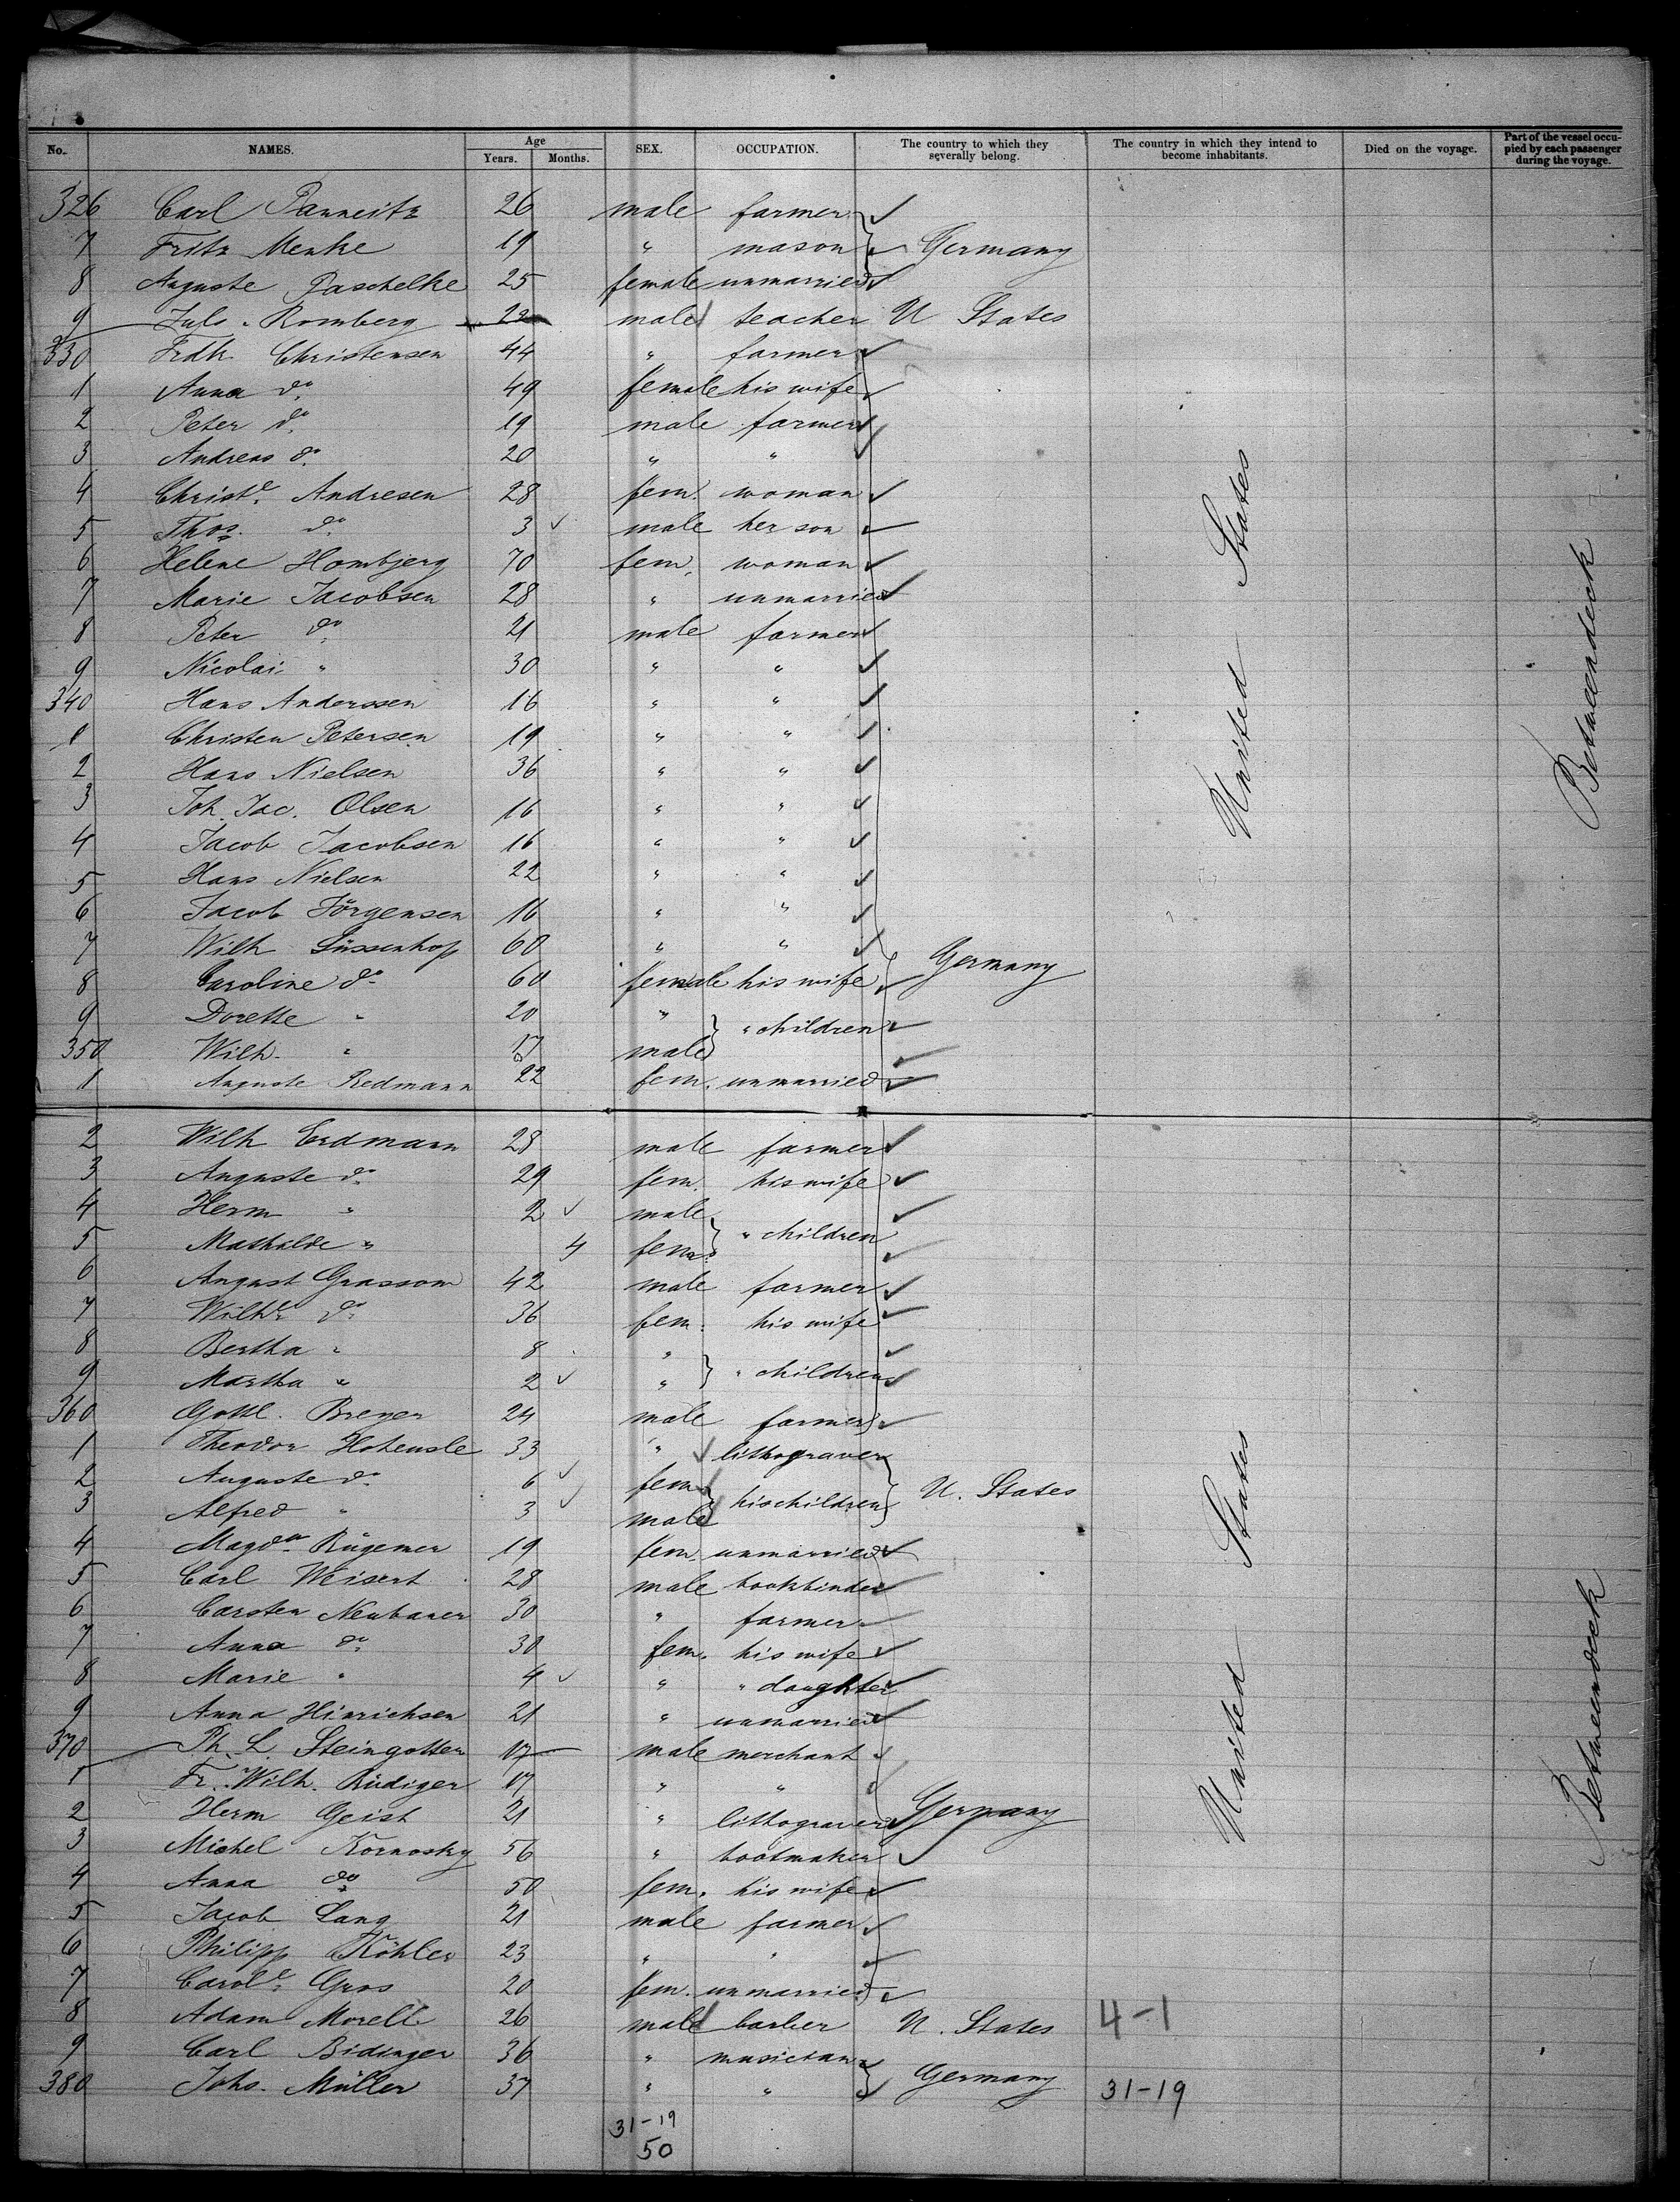 No. NAMES. Age Years. Months. SEX. OCCUPATION. The country to which they severally belong. The country in which they intend to become inhabitants. Died on the voyage. Part of the vessel occupied by each passenger during the voyage.
326 Carl Panneitz 26 male farmer
7 Fritz Menke 19 " mason Germany
8 Auguste Paschelke 25 female unmarried
9 Juls. Romberg 22 male teacher U States
330 Frdk. Christensen 44 " farmer
1 Anna do. 49 female his wife
2 Peter do. 19 male farmer
3 Andreas do. 20 " "
4 Christe. Andresen 28 fem. woman
5 Thos. do. 3 male her son
6 Helene Hombjerg 70 fem. woman
7 Marie Jacobsen 28 " unmarried
8 Peter do. 21 male farmer
9 Nicolai " 30 " "
340 Hans Anderssen 16 " "
1 Christen Petersen 19 " "
2 Hans Nielsen 36 " "
3 Joh. Jac. Olsen 16 " "
4 Jacob Jacobsen 16 " "
5 Hans Nielsen 22 " "
6 Jacob Jörgensen 16 " "
7 Wilh Süssenhop 60 " " Germany
8 Caroline do. 60 female his wife
9 Dorette " 20 " " children
350 Wilh. " 17 male
1 Auguste Redmann 22 fem. unmarried
United States
Betweendeck
2 Wilh Erdmann 28 male farmer
3 Auguste do. 29 fem. his wife
4 Herm " 2 male " children
5 Mathilde " 4 fem.
6 August Grassom 42 male farmer
7 Wilhe. do. 36 fem. his wife
8 Bertha " 8 " " children
9 Martha " 2 "
360 Gottl. Breyer 24 male farmer
1 Theodor Hohensle 33 " lithograver
2 Auguste do. 6 fem. his children U. States
3 Alfred " 3 male
4 Magda. Rügemer 19 fem. unmarried
5 Carl Weisert 28 male bookbinder
6 Carsten Neubauer 30 " farmer
7 Anna do. 30 fem. his wife
8 Marie " 4 " " daughter
9 Anna Hinrichsen 21 " unmarried
370 Ph. L. Steingotter 17 male merchant
1 Fr. Wilh. Rüdiger 17 " "
2 Herm Geist 21 " lithograver Germany
3 Michel Kornosky 56 " bootmaker
4 Anna do. 50 fem. his wife
5 Jacob Lang 21 male farmer
6 Philipp Köhler 23 " "
7 Carole. Gros 20 fem. unmarried
8 Adam Morell 26 male barber U. States 4-1
9 Carl Bidinger 36 " musician
380 Johs. Müller 37 " " Germany 31-19
United States
Betweendeck
31-19
50